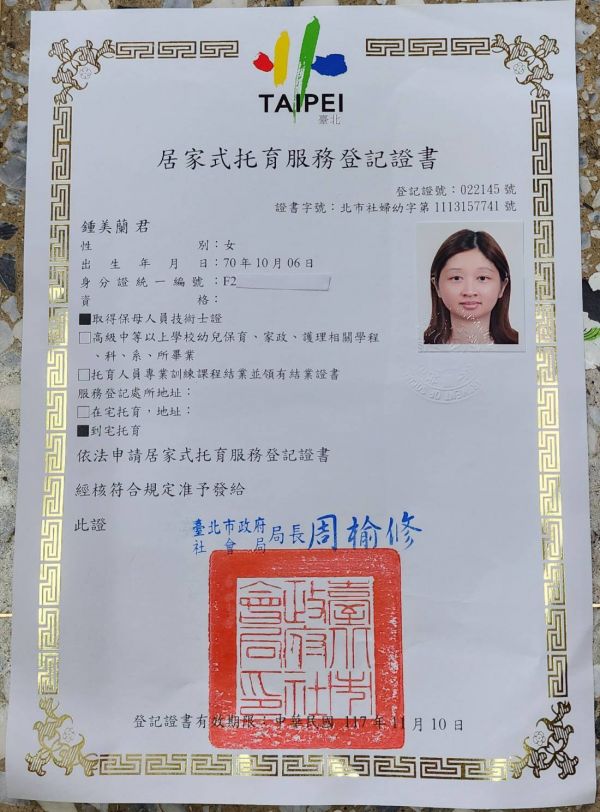 TAIPEI
臺北
居家式托育服務登記證書
登記證號：022145 號
證書字號：北市社婦幼字第 1113157741 號
鍾美蘭 君
性別：女
出生年月日：70 年 10 月 06 日
身分證統一編號：F2
資格：
■取得保母人員技術士證
□高級中等以上學校幼兒保育、家政、護理相關學程
、科、系、所畢業
□托育人員專業訓練課程結業並領有結業證書
服務登記處所地址：
□在宅托育，地址：
■到宅托育
依法申請居家式托育服務登記證書
經核符合規定准予發給
此證
臺北市政府
社會局
局長 周榆修
臺北市
政府社
會局印
登記證書有效期限：中華民國 117 年 11 月 10 日